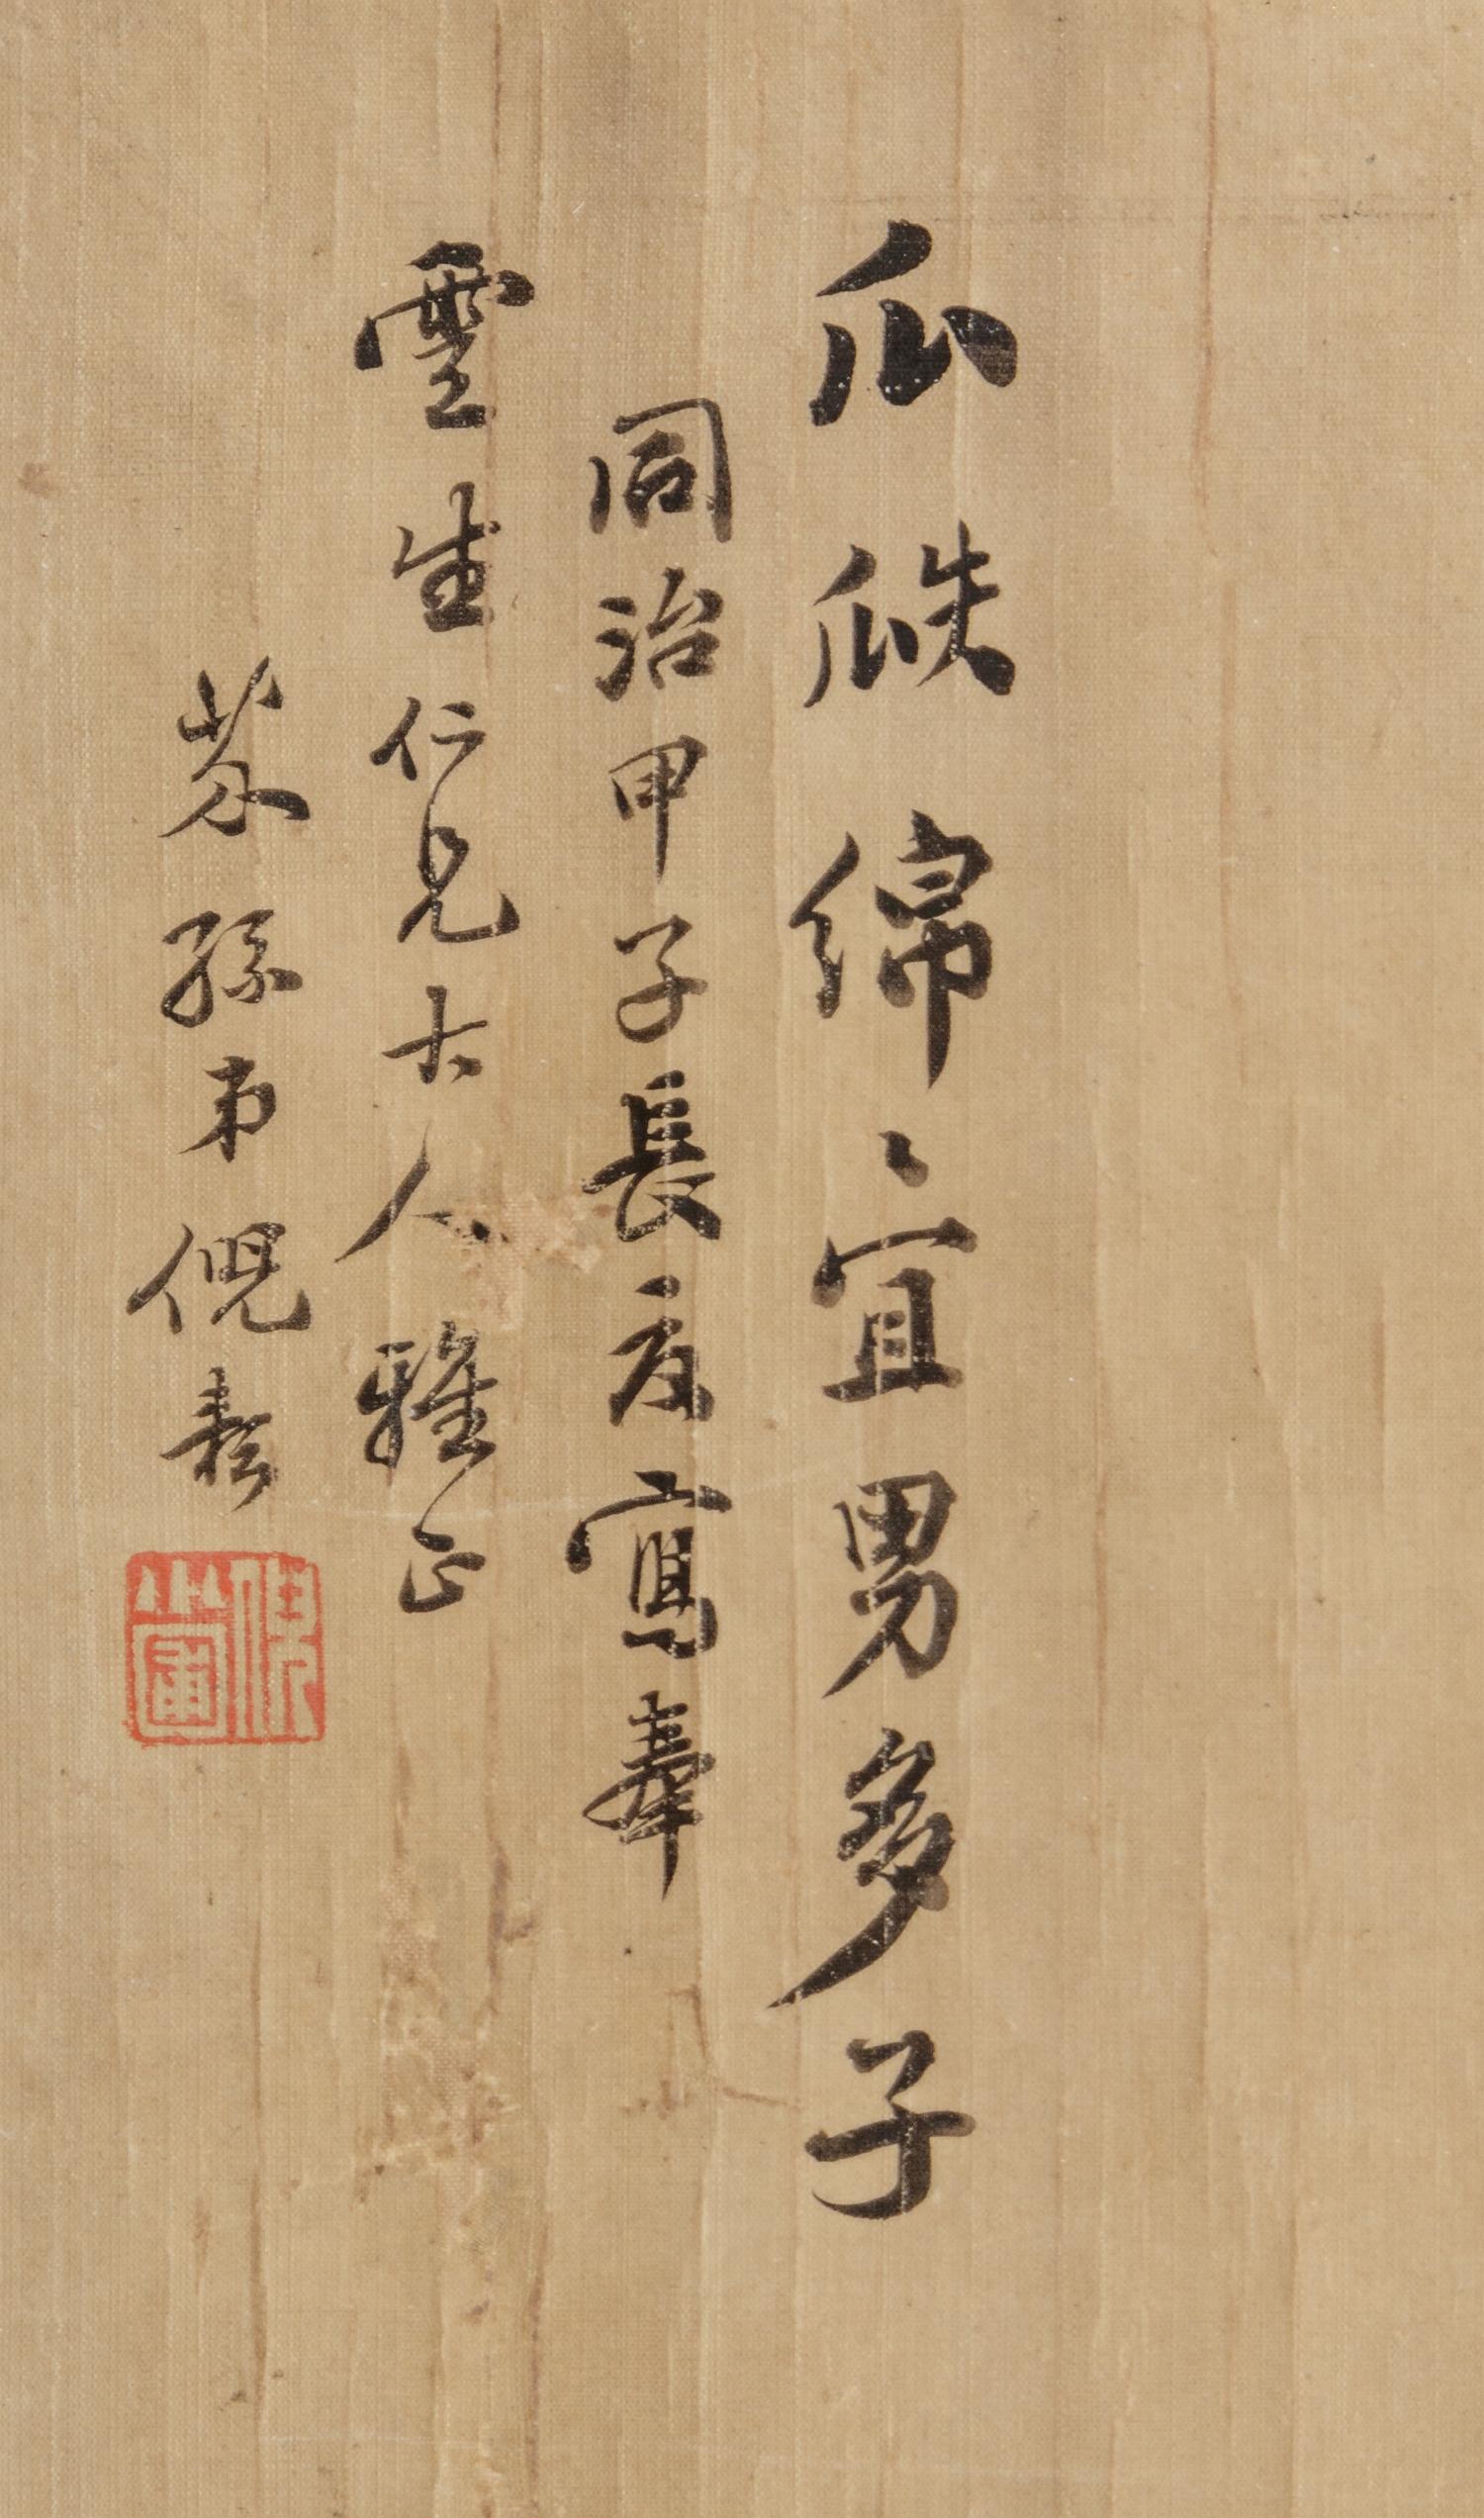 瓜瓞綿〻宜男多子
同治甲子長夏寫奉
雲生仁兄大人雅正
芥孫弟倪耘
倪小圃